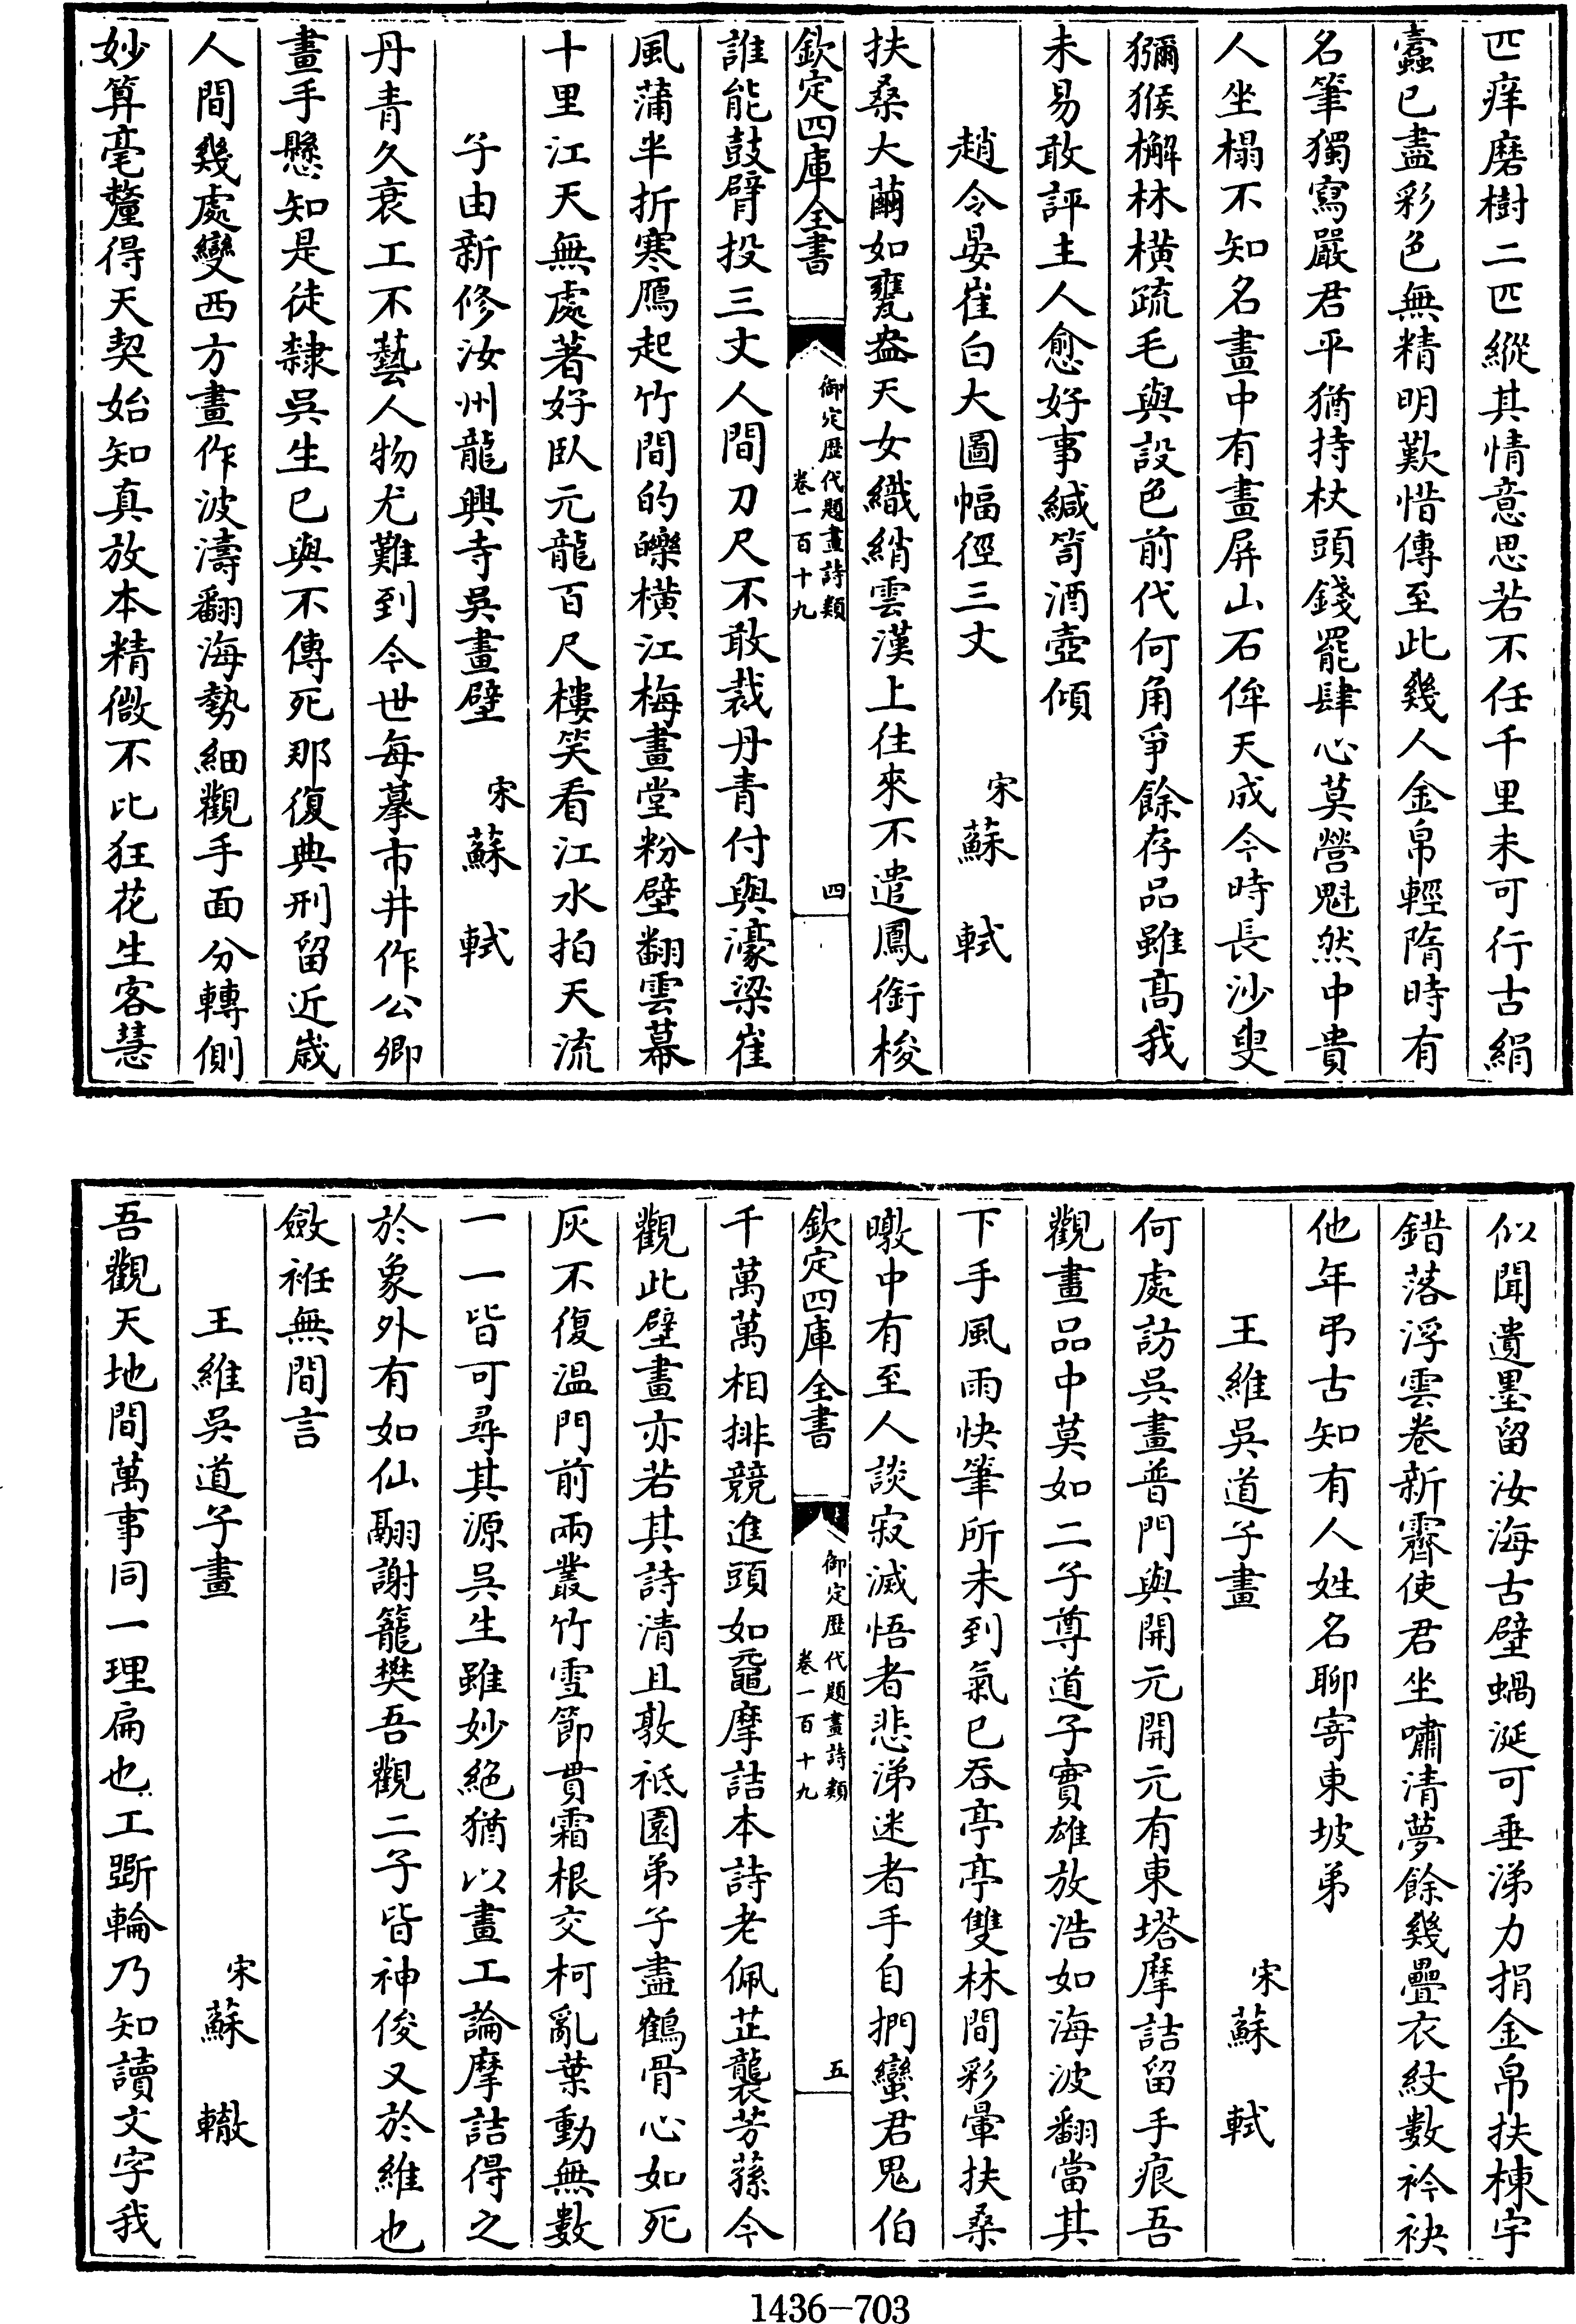 匹痒磨樹二匹縱其情意思若不任千里未可行古絹
蠹已盡彩色無精明歎惜傳至此幾人金帛輕隋時有
名筆獨寫嚴君平猶持杖頭錢罷肆心莫營魁然中貴
人坐榻不知名畫中有畫屏山石侔天成今時長沙叟
獼猴檞林橫疏毛與設色前代何角爭餘存品雖高我
未易敢評主人愈好事緘笥酒壺傾
趙令晏崔白大圖幅徑三丈 宋蘇軾
扶桑大繭如甕盎天女織綃雲漢上往來不遣鳳銜梭
欽定四庫全書 御定歷代題畫詩類 卷一百十九 四
誰能鼓臂投三丈人間刀尺不敢裁丹青付與濠梁崔
風蒲半折寒鴈起竹間的皪橫江梅畫堂粉壁翻雲幕
十里江天無處著好臥元龍百尺樓笑看江水拍天流
子由新修汝州龍興寺吳畫壁 宋蘇軾
丹青久衰工不藝人物尤難到今世每摹市井作公卿
畫手懸知是徒隸吳生已與不傳死那復典刑留近嵗
人間幾處變西方畫作波濤翻海勢細觀手面分轉側
妙算毫釐得天契始知真放本精微不比狂花生客慧
似聞遺墨留汝海古壁蝸涎可垂涕力捐金帛扶棟宇
錯落浮雲卷新霽使君坐嘯清夢餘幾疊衣紋數衿袂
他年弔古知有人姓名聊寄東坡弟
王維吳道子畫 宋蘇軾
何處訪吳畫普門與開元開元有東塔摩詰留手痕吾
觀畫品中莫如二子尊道子實雄放浩如海波翻當其
下手風雨快筆所未到氣已吞亭亭雙林間彩暈扶桑
暾中有至人談寂滅悟者悲涕迷者手自捫蠻君鬼伯
欽定四庫全書 御定歷代題畫詩類 卷一百十九 五
千萬萬相排競進頭如黿摩詰本詩老佩芷襲芳蓀今
觀此壁畫亦若其詩清且敦祇園弟子盡鶴骨心如死
灰不復溫門前兩叢竹雪節貫霜根交柯亂葉動無數
一一皆可尋其源吳生雖妙絕猶以畫工論摩詰得之
於象外有如仙翮謝籠樊吾觀二子皆神俊又於維也
斂袵無間言
王維吳道子畫 宋蘇轍
吾觀天地間萬事同一理扁也工斲輪乃知讀文字我
1436-703